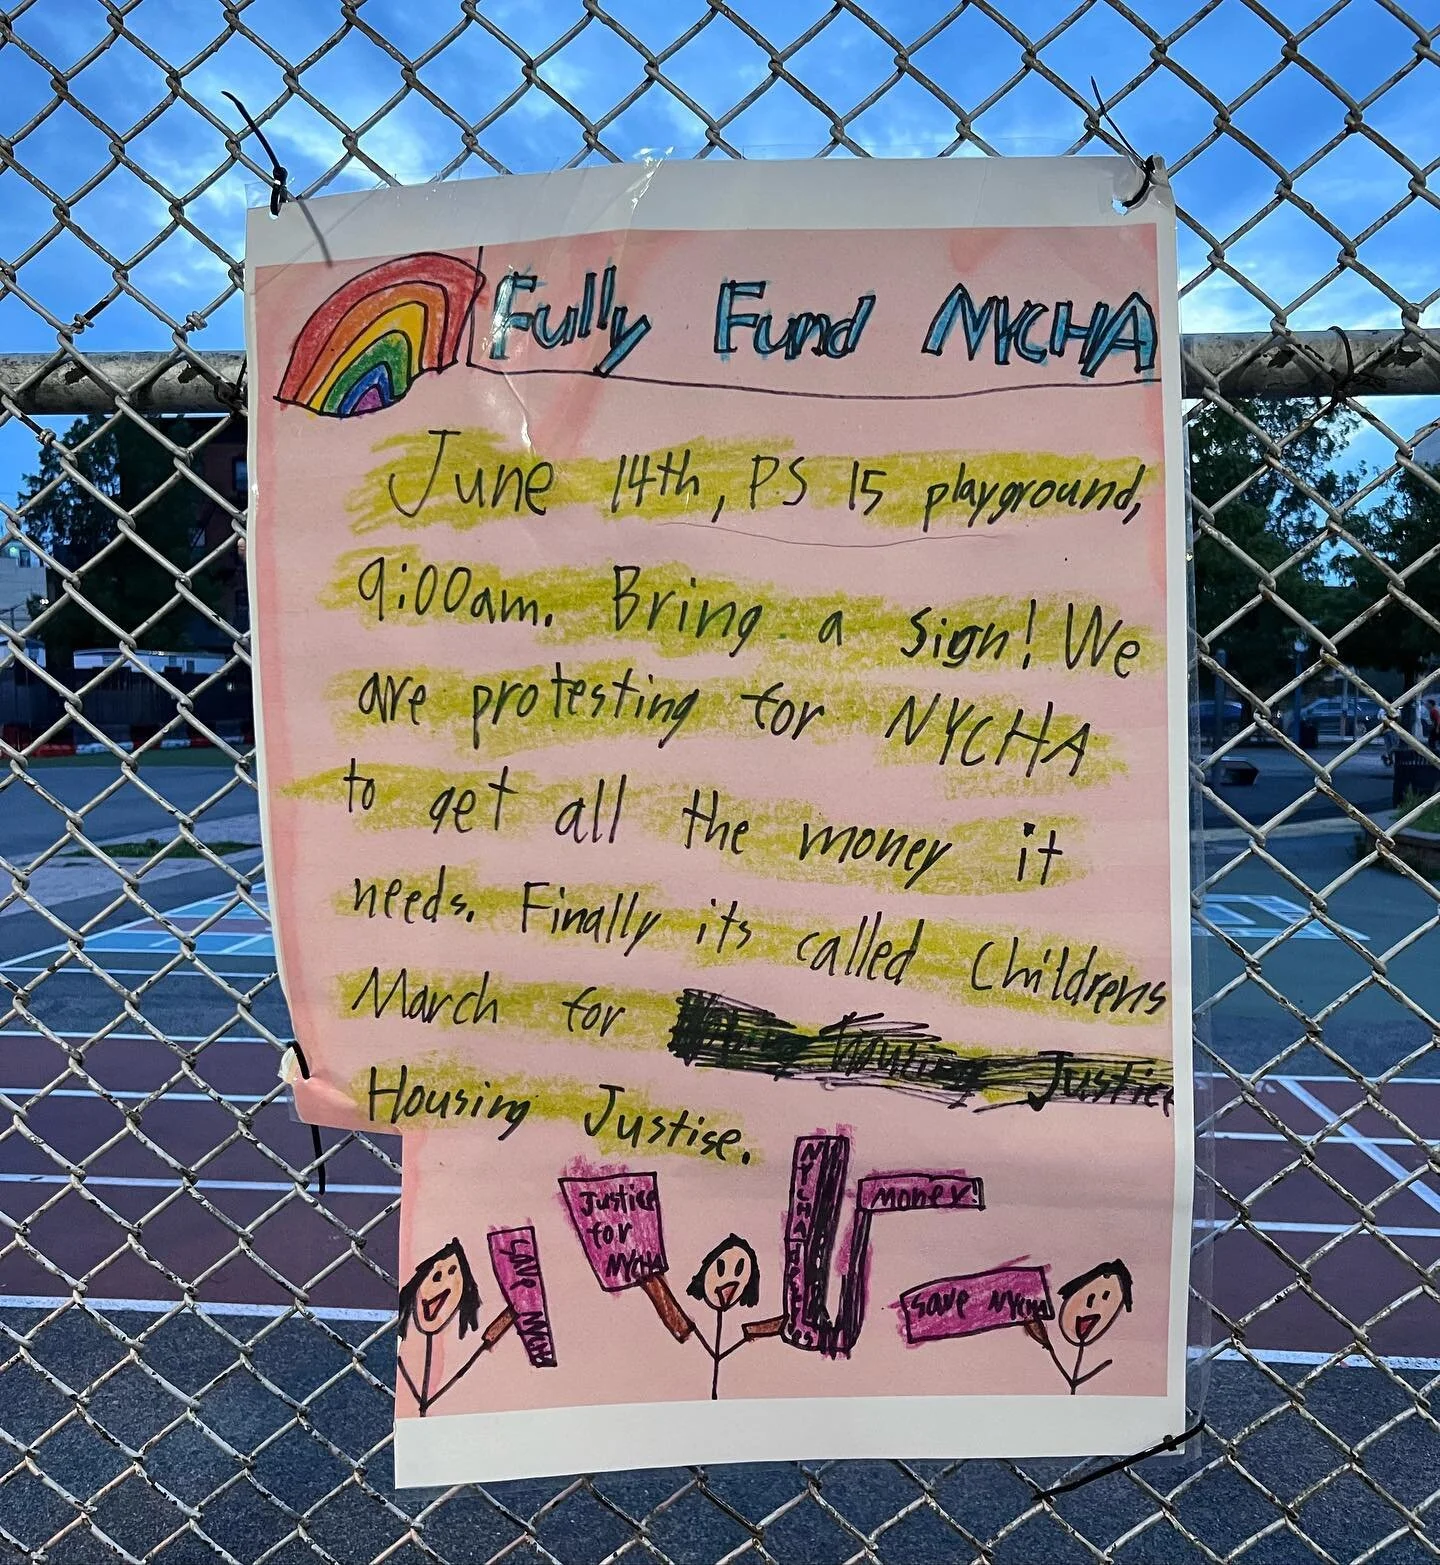 Fully Fund NYCHA
June 14th, PS 15 playground,
9:00am. Bring a sign! We
are protesting for NYCHA
to get all the money it
needs. Finally its called Childrens
March for Justice
Housing Justise.
LOVE NYCHA
Justice
for
NYCHA
NYCHA
money!
Save NYCHA